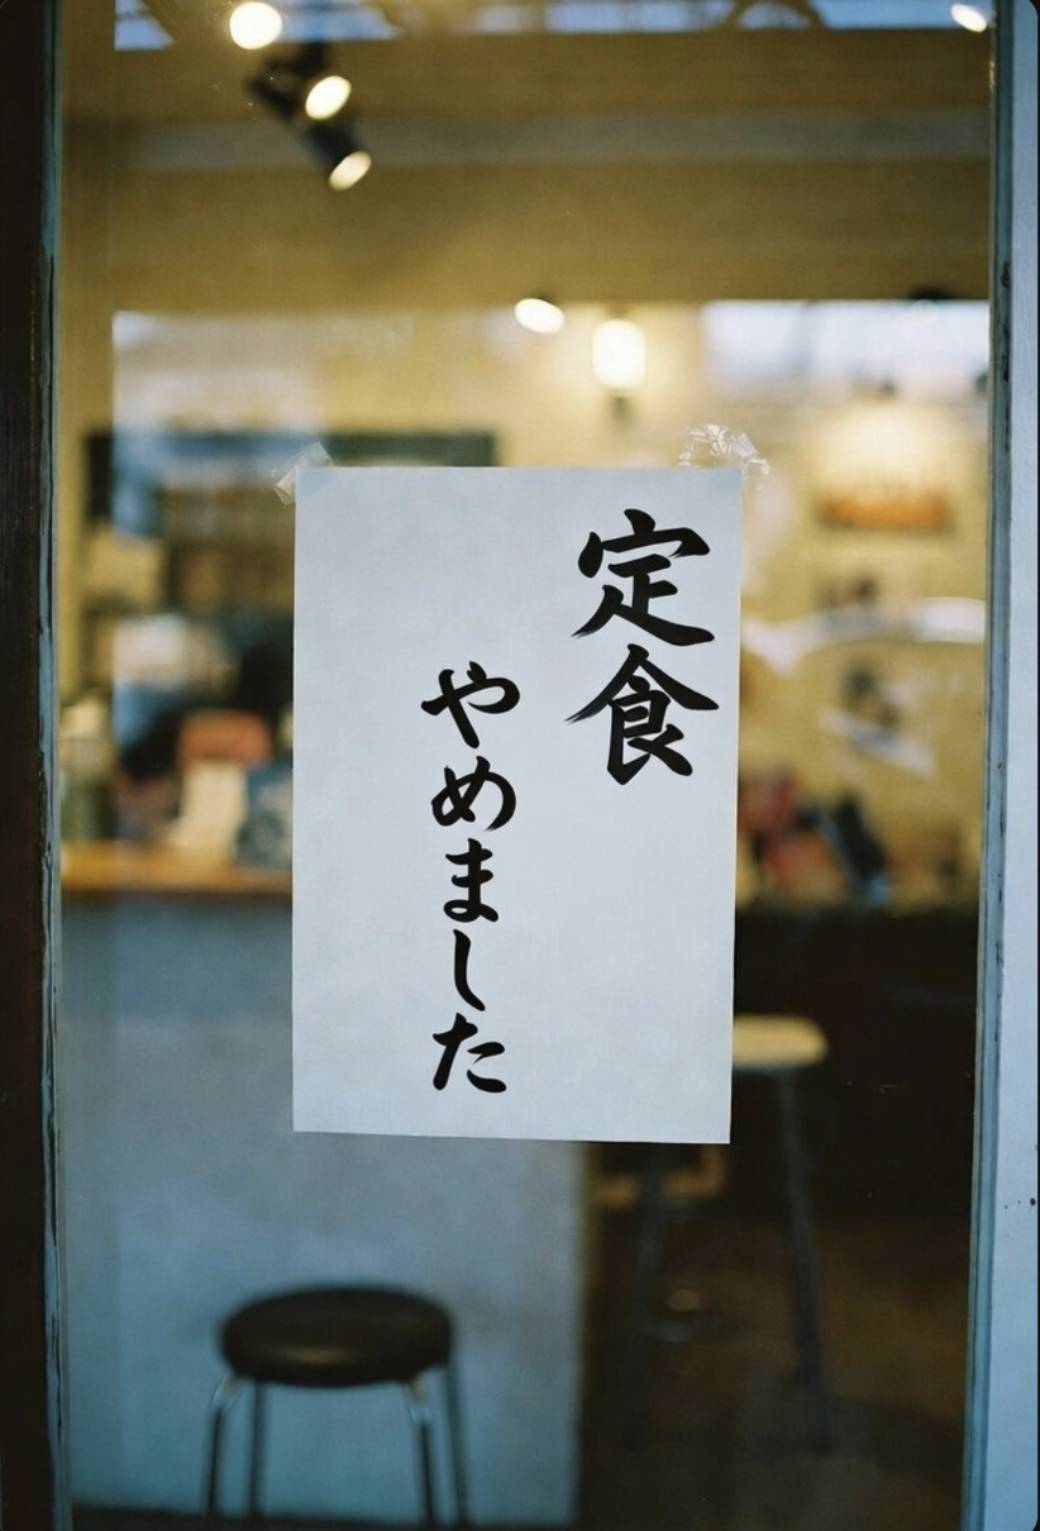 定食
やめました